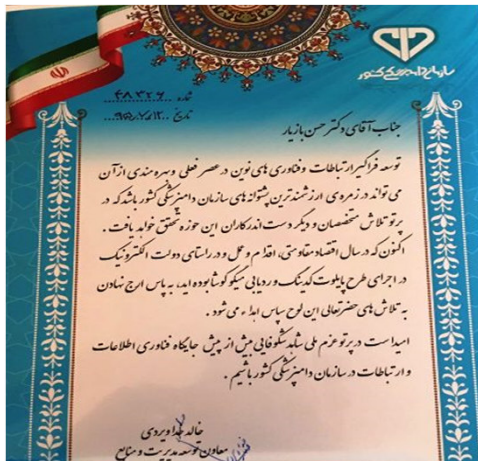 سازمان دامپزشکی کشور
شماره ۴۸۳۲۶
تاریخ
جناب آقای دکتر حسن بازیار
توسعه فراگیر ارتباطات و فناوری های نوین در عصر فعلی و بهره مندی از آن
می تواند در زمره ی ارزشمندترین پشتوانه های سازمان دامپزشکی کشور باشد که در
پرتو تلاش متخصصان و دیگر دست اندرکاران این حوزه تحقق خواهد یافت .
اکنون که در سال اقتصاد مقاومتی، اقدام و عمل و در راستای دولت الکترونیک
در اجرای طرح پایلوت کدینگ و ردیابی نیکو کوشا بوده اید، به پاس ارج نهادن
به تلاش های حضرتعالی این لوح سپاس اهداء می شود .
امید است در پرتو عزم ملی شاهد شکوفایی بیش از پیش جایگاه فناوری اطلاعات
و ارتباطات در سازمان دامپزشکی کشور باشیم .
خاله خداویردی
معاون توسعه مدیریت و منابع